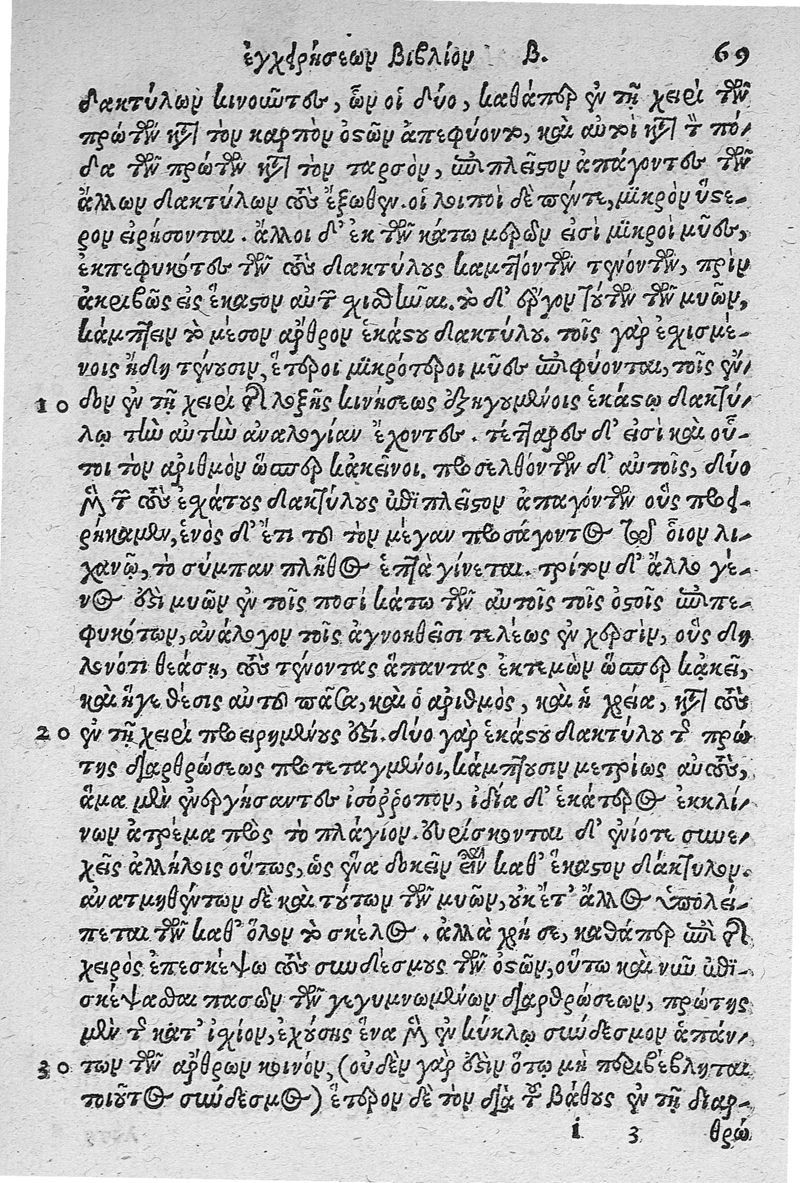 ἐγχειρήσεων Βιβλίον Β. 69
δακτύλων κινοῦντες, ὧν οἱ δύο, καθάπερ ἐν τῇ χειρὶ τῶν
πρώτων κατὰ τὸν καρπὸν ὀστῶν ἀπεφύοντο, καὶ αὐτοὶ κατὰ τὸν πό-
δα τῶν πρώτων κατὰ τὸν ταρσὸν, ἐπιπλεῖστον ἀπάγοντες τῶν
ἄλλων δακτύλων τοὺς ἔξωθεν. οἱ λοιποὶ δὲ πέντε, μικρὸν ὕστε-
ρον εἰρήσονται. ἄλλοι δ' ἐκ τῶν κάτω μερῶν εἰσὶ μικροὶ μῦες,
ἐκπεφυκότες τῶν τοὺς δακτύλους καμπτόντων τενόντων, πρὶν
ἀκριβῶς εἰς ἕκαστον αὐτῶν σχισθῆναι. τὸ δ' ἔργον τούτων τῶν μυῶν,
κάμπτειν τὸ μέσον ἄρθρον ἑκάστου δακτύλου. τοῖς γὰρ ἐσχισμέ-
νοις ἤδη τένουσιν, ἕτεροι μικρότεροι μῦες ἐπιφύονται, τοῖς ἔν-
10 δον ἐν τῇ χειρὶ τῆς λοξῆς κινήσεως ἐξηγουμένοις ἑκάστῳ δακτύ-
λῳ τὴν αὐτὴν ἀναλογίαν ἔχοντες. τέτταρες δ' εἰσὶ καὶ οὗ-
τοι τὸν ἀριθμὸν ὥσπερ κἀκεῖνοι. προσελθόντων δ' αὐτοῖς, δύο
μὲν τῶν τοὺς ἐσχάτους δακτύλους ἐπιπλεῖστον ἀπαγόντων οὓς προει-
ρήκαμεν, ἑνὸς δ' ἔτι τοῦ τὸν μέγαν προσάγοντος τῷ οἷον λι-
χανῷ, τὸ σύμπαν πλῆθος ἑπτὰ γίνεται. τρίτον δ' ἄλλο γέ-
νος ἐστὶ μυῶν ἐν τοῖς ποσὶ κάτω τῶν αὐτοῖς τοῖς ὀστοῖς ἐπιπε-
φυκότων, ἀνάλογον τοῖς ἀγνοηθεῖσι τελέως ἐν χερσὶν, οὓς δη
λονότι θεάσῃ, τοὺς τένοντας ἅπαντας ἐκτεμὼν ὥσπερ κἀκεῖ,
καὶ ἥγε θέσις αὐτοῦ πᾶσα, καὶ ὁ ἀριθμὸς, καὶ ἡ χρεία, κατὰ τοὺς
20 ἐν τῇ χειρὶ προειρημένους ἐστί. δύο γὰρ ἑκάστου δακτύλου τῆς πρώ
της διαρθρώσεως προτεταγμένοι, κάμπτουσιν μετρίως αὐτοὺς,
ἅμα μὲν ἐνεργήσαντες ἰσόρροπον, ἰδίᾳ δ' ἑκάτερος ἐκκλί-
νων ἀτρέμα πρὸς τὸ πλάγιον. εὑρίσκονται δ' ἐνίοτε συνε-
χεῖς ἀλλήλοις οὕτως, ὡς ἕνα δοκεῖν εἶναι καθ' ἕκαστον δάκτυλον.
ἀνατμηθέντων δὲ καὶ τούτων τῶν μυῶν, οὐκ ἔτ' ἄλλος ὑπολεί-
πεται τῶν καθ' ὅλον τὸ σκέλος. ἀλλὰ χρή σε, καθάπερ ἐπὶ τῆς
χειρὸς ἐπεσκέψω τοὺς συνδέσμους τῶν ὀστῶν, οὕτω καὶ νῦν ἐπι-
σκέψασθαι πασῶν τῶν γεγυμνωμένων διαρθρώσεων, πρώτης
μὲν τῆς κατ' ἰσχίον, ἐχούσης ἕνα μὲν ἐν κύκλῳ σύνδεσμον ἁπάν-
30 των τῶν ἄρθρων κοινόν, (οὐδὲν γὰρ ἐστὶν ὅτῳ μὴ περιβέβληται
τοιοῦτος σύνδεσμος) ἕτερον δὲ τὸν διὰ τοῦ βάθους ἐν τῇ διαρ-
i 3 θρώ